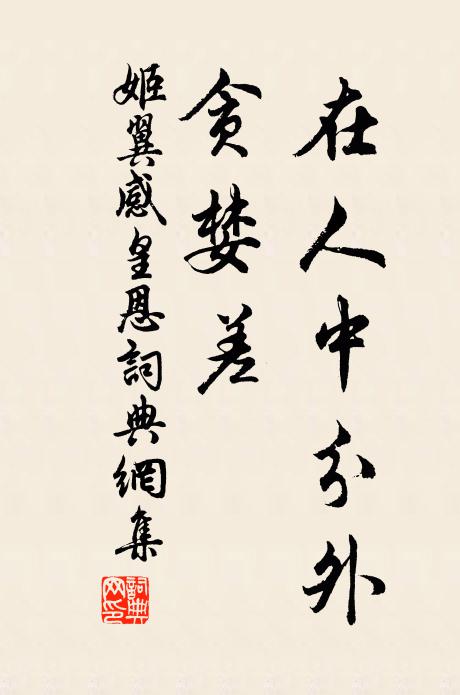 在人中分外
貪婪差
姬翼感皇恩詞典網集
詞典
网印